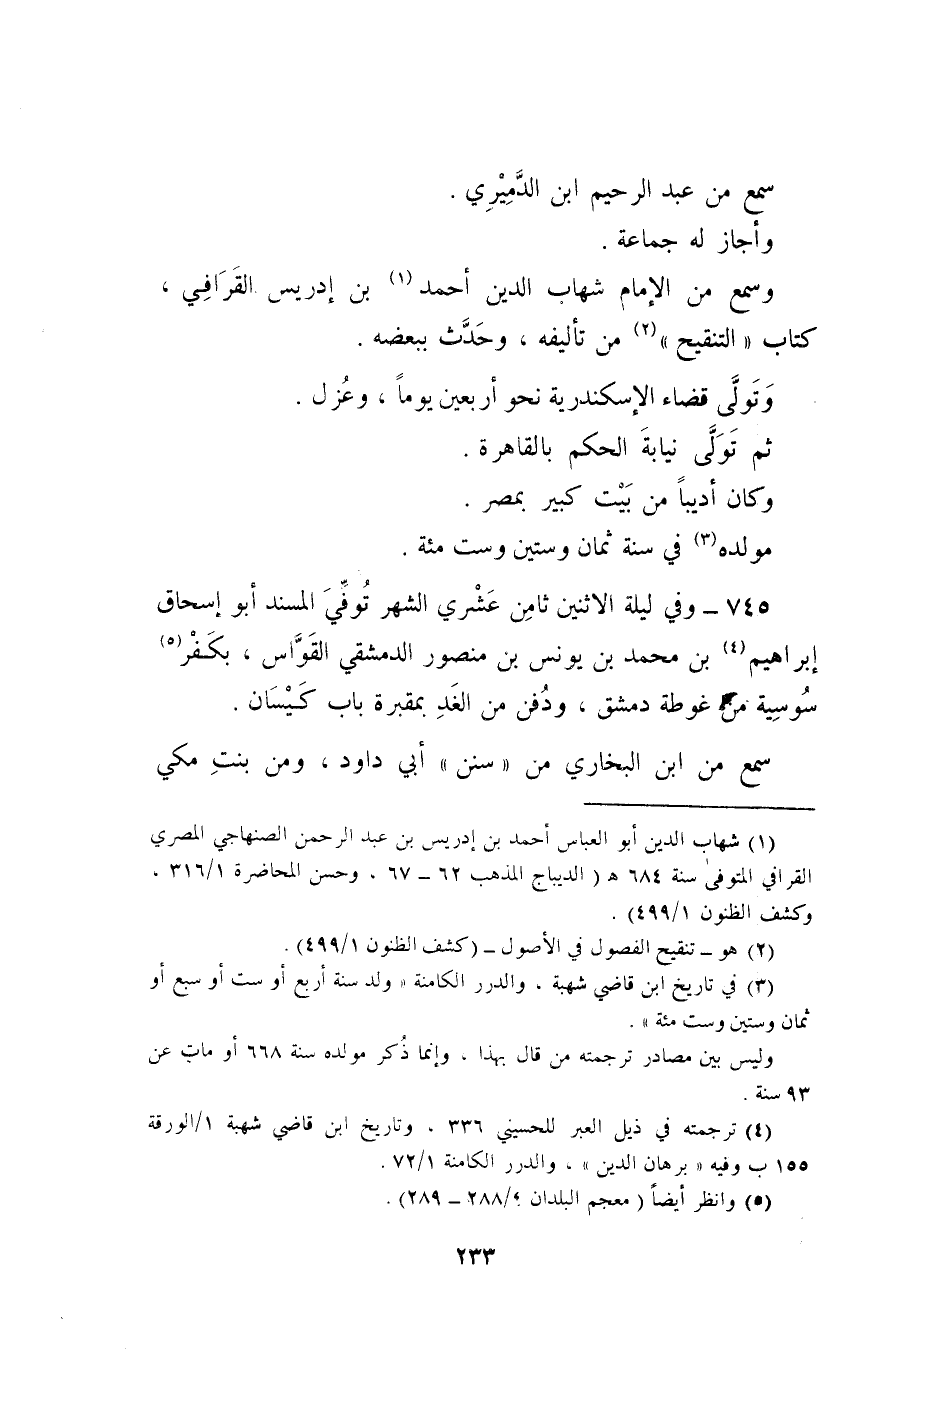 سمع من عبد الرحيم ابن الدَّمِيْرِي .
وأجاز له جماعة .
وسمع من الإمام شهاب الدين أحمد(١) بن إدريس القَرَافِي ،
كتاب « التنقيح »(٢) من تأليفه ، وحَدَّث ببعضه .
وَتَولَّى قضاء الإسكندرية نحو أربعين يوماً ، وعُزل .
ثم تَوَلَّى نيابةَ الحكم بالقاهرة .
وكان أديباً من بَيْت كبير بمصر .
مولده(٣) في سنة ثمان وستين وست مئة .
٧٤٥ ــ وفي ليلة الاثنين ثامِن عَشْري الشهر تُوفِّيَ المسند أبو إسحاق
إبراهيم(٤) بن محمد بن يونس بن منصور الدمشقي القَوَّاس ، بكَفْر(٥)
سُوسِية من غوطة دمشق ، ودُفن من الغَدِ بمقبرة باب كَيْسَان .
سمع من ابن البخاري من « سنن » أبي داود ، ومن بنتِ مكي
(١) شهاب الدين أبو العباس أحمد بن إدريس بن عبد الرحمن الصنهاجي المصري
القرافي المتوفى سنة ٦٨٤ هـ ( الديباج المذهب ٦٢ ــ ٦٧ ، وحسن المحاضرة ٣١٦/١ ،
وكشف الظنون ٤٩٩/١) .
(٢) هو ــ تنقيح الفصول في الأصول ــ (كشف الظنون ٤٩٩/١) .
(٣) في تاريخ ابن قاضي شهبة ، والدرر الكامنة « ولد سنة أربع أو ست أو سبع أو
ثمان وستين وست مئة » .
وليس بين مصادر ترجمته من قال بهذا ، وإنما ذُكر مولده سنة ٦٦٨ أو مات عن
٩٣ سنة .
(٤) ترجمته في ذيل العبر للحسيني ٣٣٦ ، وتاريخ ابن قاضي شهبة ١/الورقة
١٥٥ ب وفيه « برهان الدين » ، والدرر الكامنة ٧٢/١ .
(٥) وانظر أيضاً ( معجم البلدان ٢٨٨/٤ ــ ٢٨٩) .
٢٣٣